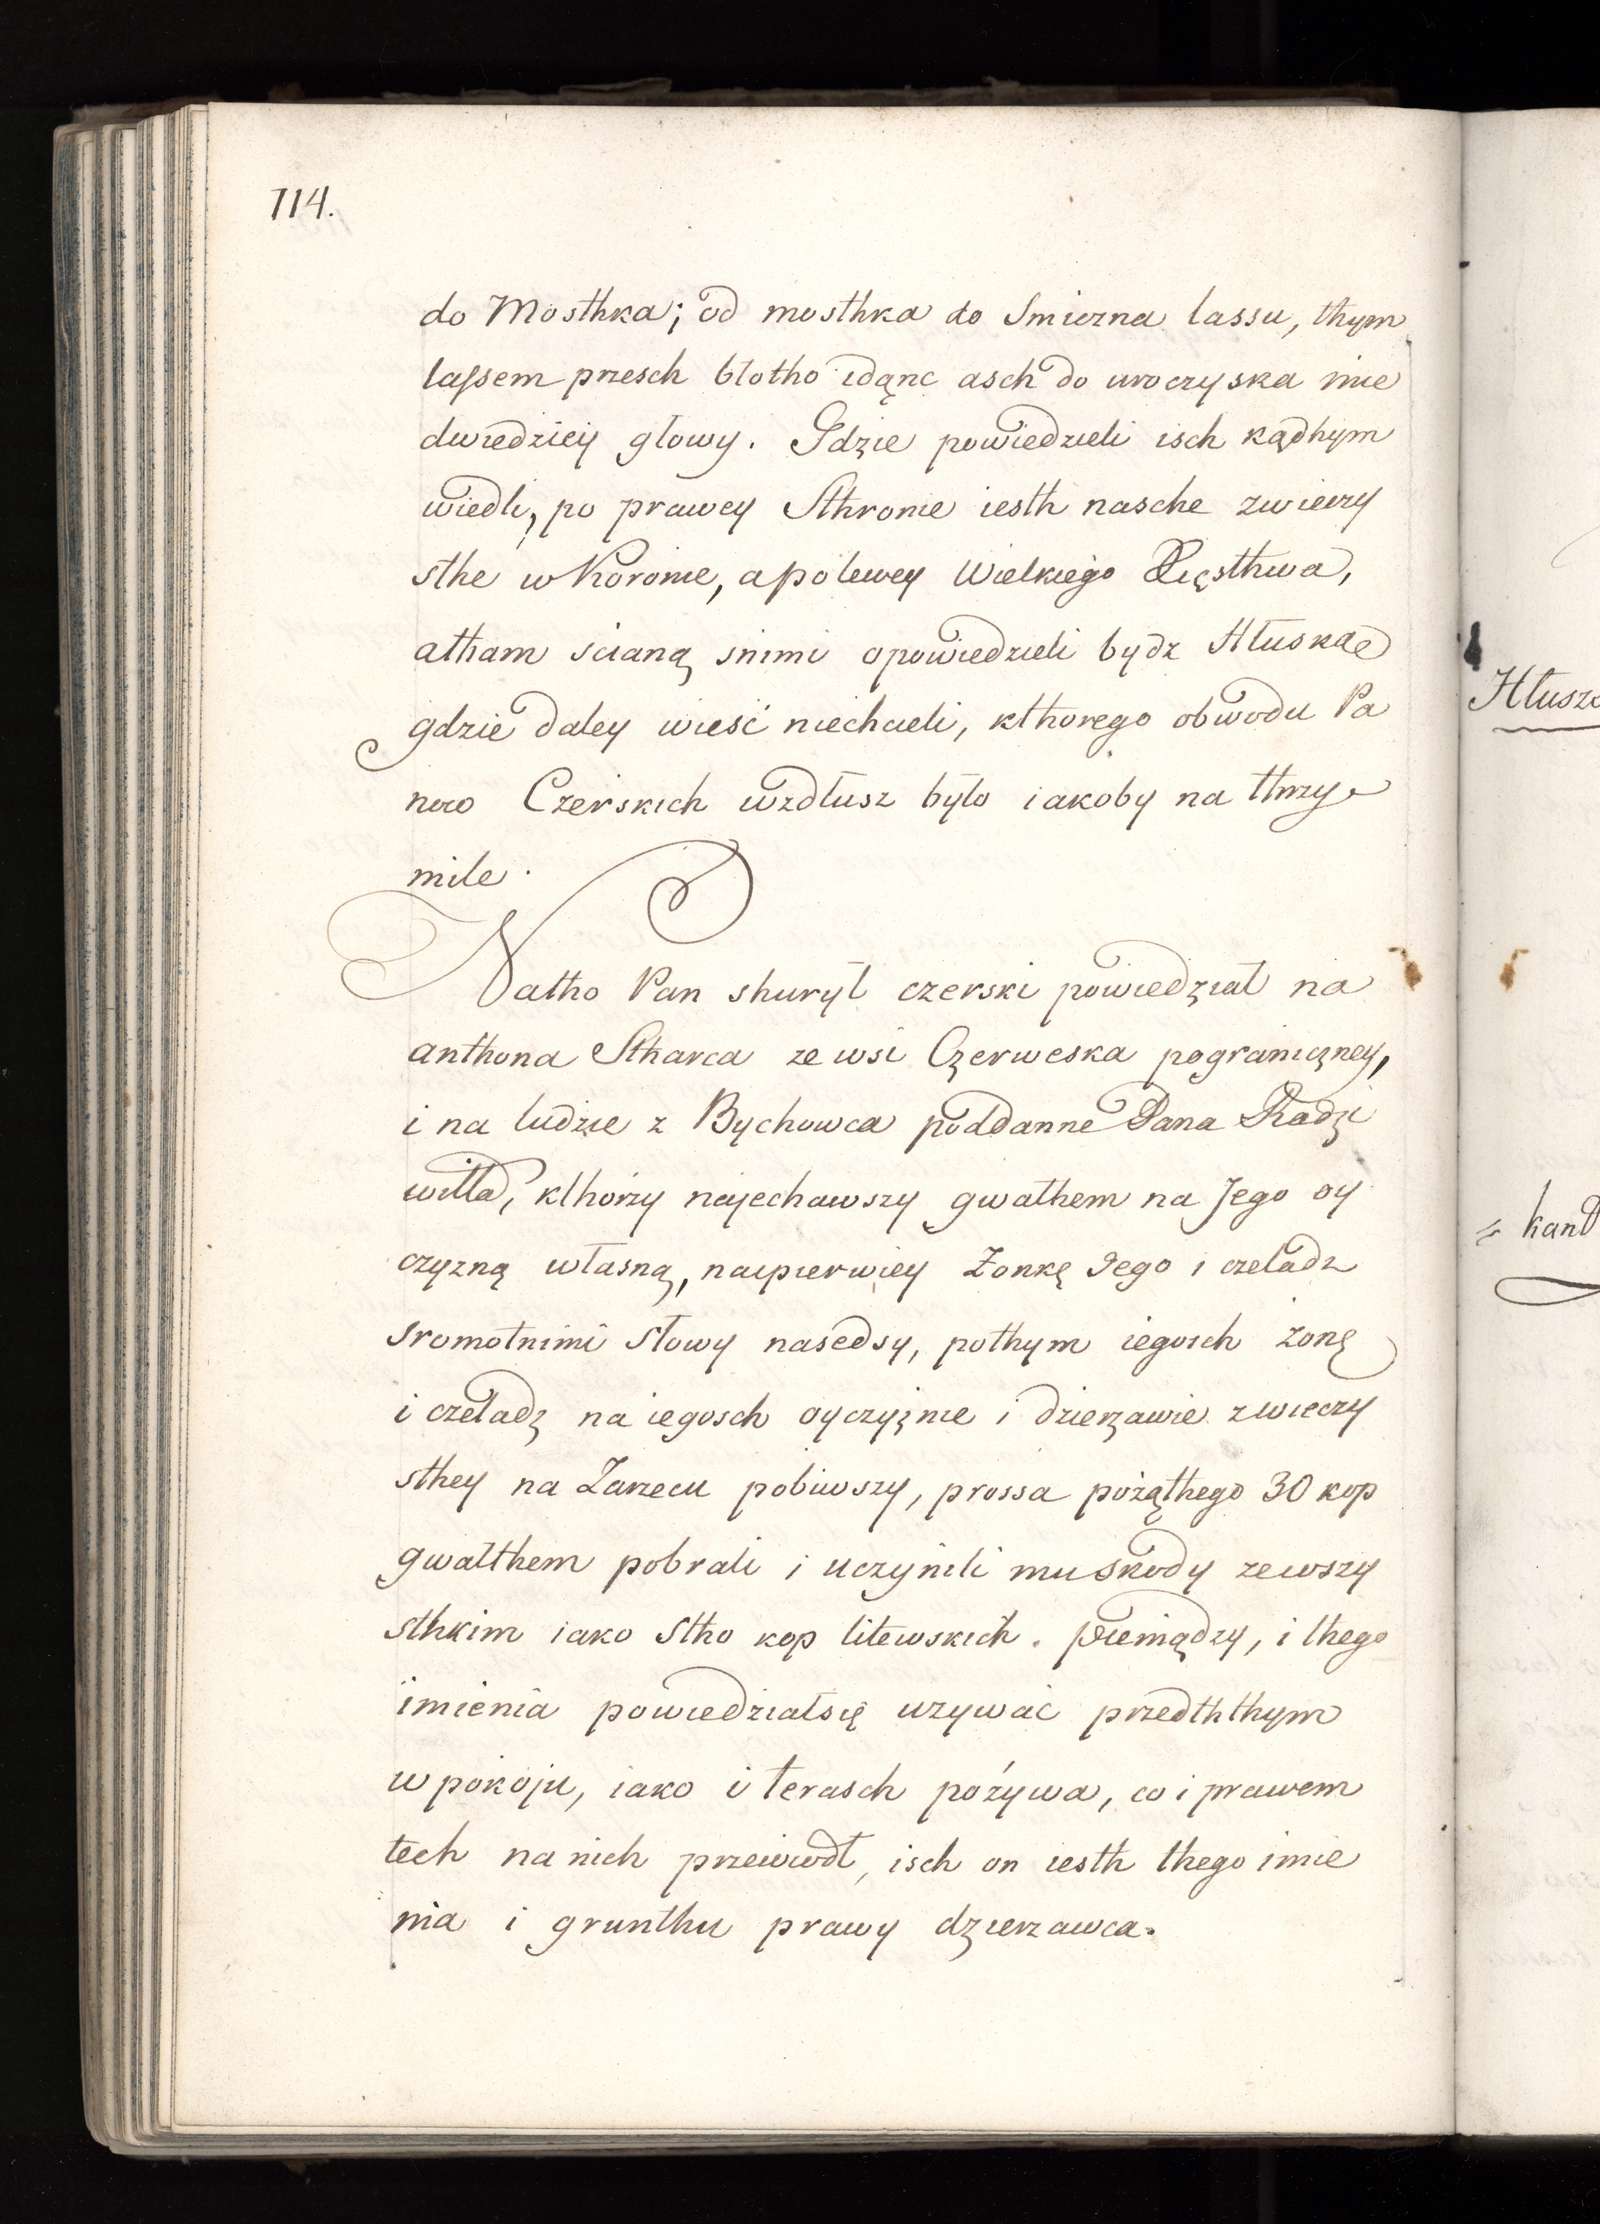 114.
do Mosthka; od mosthka do Smiezna lassu, thym
lassem przesch błotho idąnc asch do uroczyska nie
dwiedzieÿ głowy. Gdzie powiedzieli isch kądhym
wiedli, po prawey Sthronie iesth nasche zwieczy
sthe w Koronie, apolewey Wielkiego Xięsthwa,
atham scianą snimi opowiedzieli bydz Hłuska
gdzie daley wieść niechcieli, kthorego obwodu Pa
now Czerskich wzdłusz było iakoby na thrzy
mile.
Natho Pan shurył czerski powiedział na
anthona Stharca ze wsi Czerweska pograniczney,
i na ludzie z Bychowca poddanne Pana Radzi
wiłła, kthórzy najechawszy gwałthem na Jego oy
czyzną własną, naipierwiey Żonkę Jego i czeladz
sromotnimi słowy nasedsy, pothym iegosch żonę
i czeladz na iegosch oyczyznie i dzierzawie zwieczy
sthey na Zarzecu pobiwszy, prossa pożąthego 30 kop
gwałthem pobrali i uczynili mu skody zewszy
sthkim iako Stho kop litewskich. pieniądzy, i thego
imienia powiedziałsię uzywać przedththym
w pokoju, iako i terasch pożywa, co i prawem
tech na nich przewiodł, isch on iesth thego imie
nia i grunthu prawy dzierzawca.
kand